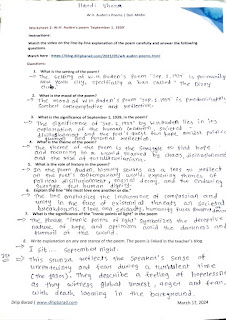 Hardi Vhora
W.H. Auden's Poems | Dan Motin
Worksheet 2: W.H. Auden's poem 'September 1, 1939'
Instructions:
Watch the video on the line by line explanation of the poem carefully and answer the following questions.
Watch here - https://blog.dilipbarad.com/2021/05/wh-auden-poems.html
Questions:
1. What is the setting of the poem?
→ The setting of W.H Auden's poem "Sep. 1, 1939" is primarily New York City, specifically a bar called "The Dizzy Club."
2. What is the mood of the poem?
→ The mood of W.H Auden's poem "Sep. 1, 1939" is predominantly somber contemplative and reflective.
3. What is the significance of September 1, 1939, in the poem?
→ The significance of "Sep. 1, 1939" by W.H Auden lies in its exploration of the human condition, societal disillusionment and the poet's quest for hope amidst political and personal reflection.
4. What is the theme of the poem?
→ The theme of the poem is the struggle to find hope and meaning in a world marked by chaos, disillusionment and the rise of totalitarianism.
5. What is the role of history in the poem?
→ In the poem Auden, history serves as a lens to reflect on the poet's contemporary world, exploring themes of political disillusionment, societal decay, and the enduring struggle for human dignity.
6. Explain the line "We must love one another or die."
→ The line emphasizes the importance of compassion and unity in the face of existential threats or societal
7. What is the significance of the "ironic points of light" in the poem?
→ The phrase "Ironic points of light" symbolizes the
nature of hope and optimism amid the darkness and turmoil of the world.
8. Write explanation on any one stanza of the poem. The poem is linked in the teacher's blog.
→ I sit... September night.
→ This stanza reflects the speaker's sense of uncertainty and fear during a turbulent time (the 1930s). They describe a feeling of hopelessness as they witness global unrest, anger and fear, with death looming in the background.
Dilip Barad | www.dilipbarad.com
March 17, 2024